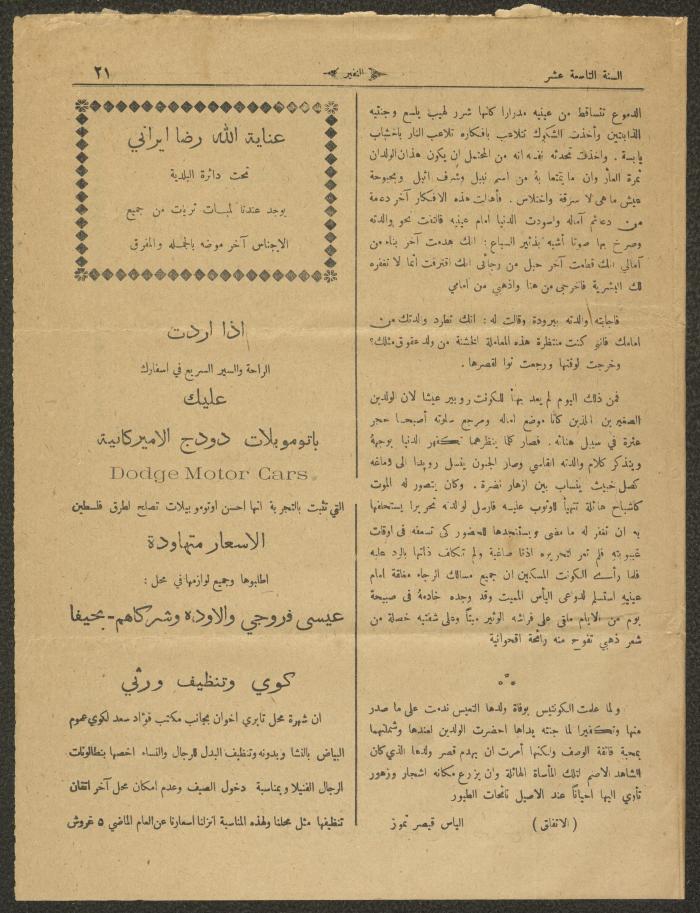 السنة التاسعة عشر
النفير
٢١
الدموع تتساقط من عينيه مدرارا كانها شرر لهيب يلسع وجنتيه
الذابلتين وأخذت الشكوك تتلاعب بافكاره تلاعب النار باخشاب
يابسة . واخذت تحدثه نفسه انه من المحتمل ان يكون هذان الولدان
ثمرة العار وان ما يتمتعا به من اسم نبيل وشرف اثيل وبحبوحة
عيش ما هي لا سرقة واختلاس . فأهالت هذه الافكار آخر دعمة
من دعائم آماله واسودت الدنيا امام عينيه فالتفت نحو والدته
وصرخ بها صوتا أشبه بزئير السباع : انك هدمت آخر بناء من
آمالي انك قطعت آخر حبل من رجائي انك اقترفت اثما لا تغفره
لك البشرية فاخرجي من هنا واذهبي من امامي
فاجابته والدته ببرودة وقالت له : انك تطرد والدتك من
امامك فاني كنت منتظرة هذه المعاملة الخشنة من ولد عقوق مثلك؟
وخرجت لوقتها ورجعت توا لقصرها .
فمن ذلك اليوم لم يعد يهنأ للكونت روبير عيشا لان الولدين
الصغيرين اللذين كانا موضع اماله ومرجع سلوته أصبحا حجر
عثرة في سبيل هنائه . فصار كلما ينظرهما تكفهر الدنيا بوجهه
ويتذكر كلام والدته القاسي وصار الجنون ينسل رويدا الى دماغه
كصل خبيث ينساب بين ازهار نضرة . وكان يتصور له الموت
كاشباح هائلة تتهيأ للوثوب عليه فارسل لوالدته تحريرا يستحلفها
به ان تغفر له ما مضى ويستنجدها للحضور كي تسعفه في اوقات
غيبوبته فلم تعر لتحريره اذنا صاغية ولم تكلف ذاتها بالرد عليه
فلما رأى الكونت المسكين ان جميع مسالك الرجاء مغلقة امام
عينيه استسلم لدوعي اليأس المميت وقد وجده خادمه في صبيحة
يوم من الايام ملقى على فراشه الوثير ميتاً وعلى شفتيه خصلة من
شعر ذهبي تفوح منه رائحة اقحوانية
ولما علمت الكونتيس بوفاة ولدها التعيس ندمت على ما صدر
منها وتكفيرا لما جنته يداها احضرت الولدين لعندها وشملتهما
بمحبة فائقة الوصف ولكنها أمرت ان يهدم قصر ولدها الذي كان
الشاهد الاصم لتلك المأساة الهائلة وان يزرع مكانه اشجار وزهور
تأوي اليها احياناً عند الاصيل نائحات الطيور
( الاتفاق ) الياس قيصر تموز
عناية الله رضا ايراني
تحت دائرة البلدية
يوجد عندنا لمبات تريت من جميع
الاجناس آخر موضه بالجمله والمفرق
اذا اردت
الراحة والسير السريع في اسفارك
عليك
باتوموبلات دودج الاميركانية
Dodge Motor Cars.
التي تثبت بالتجربة انها احسن اوتوموبيلات تصلح لطرق فلسطين
الاسعار متهاودة
اطلبوها وجميع لوازمها في محل :
عيسى فروجي والاوده وشركاهم - بحيفا
كوي وتنظيف ورثي
ان شهرة محل تابري اخوان بجانب مكتب فؤاد سعد لكوي عموم
البياض بالنشا وبدونه وتنظيف البدل للرجال والنساء اخصها بنطالونات
الرجال الفنيلا وبمناسبة دخول الصيف وعدم امكان محل آخر اتقان
تنظيفها مثل محلنا ولهذه المناسبة انزلنا اسعارنا عن العام الماضي ٥ غروش